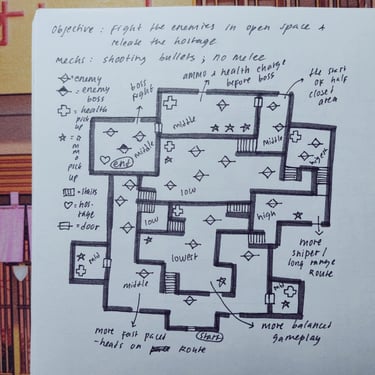 Objective : Fight the enemies in open space &
release the hostage
mechs : shooting bullets ; no melee
enemy
enemy
boss
health
pick
up
a
m
m
o
pick
up
stairs
hos-
tage
door
boss
fight
ammo & health charge
before boss
the short
or half
closed
area
middle
middle
middle
end
low
low
high
lowest
mid
middle
mid
start
more
sniper/
long range
Route
more fast paced
-heads on Route
more balanced
gameplay